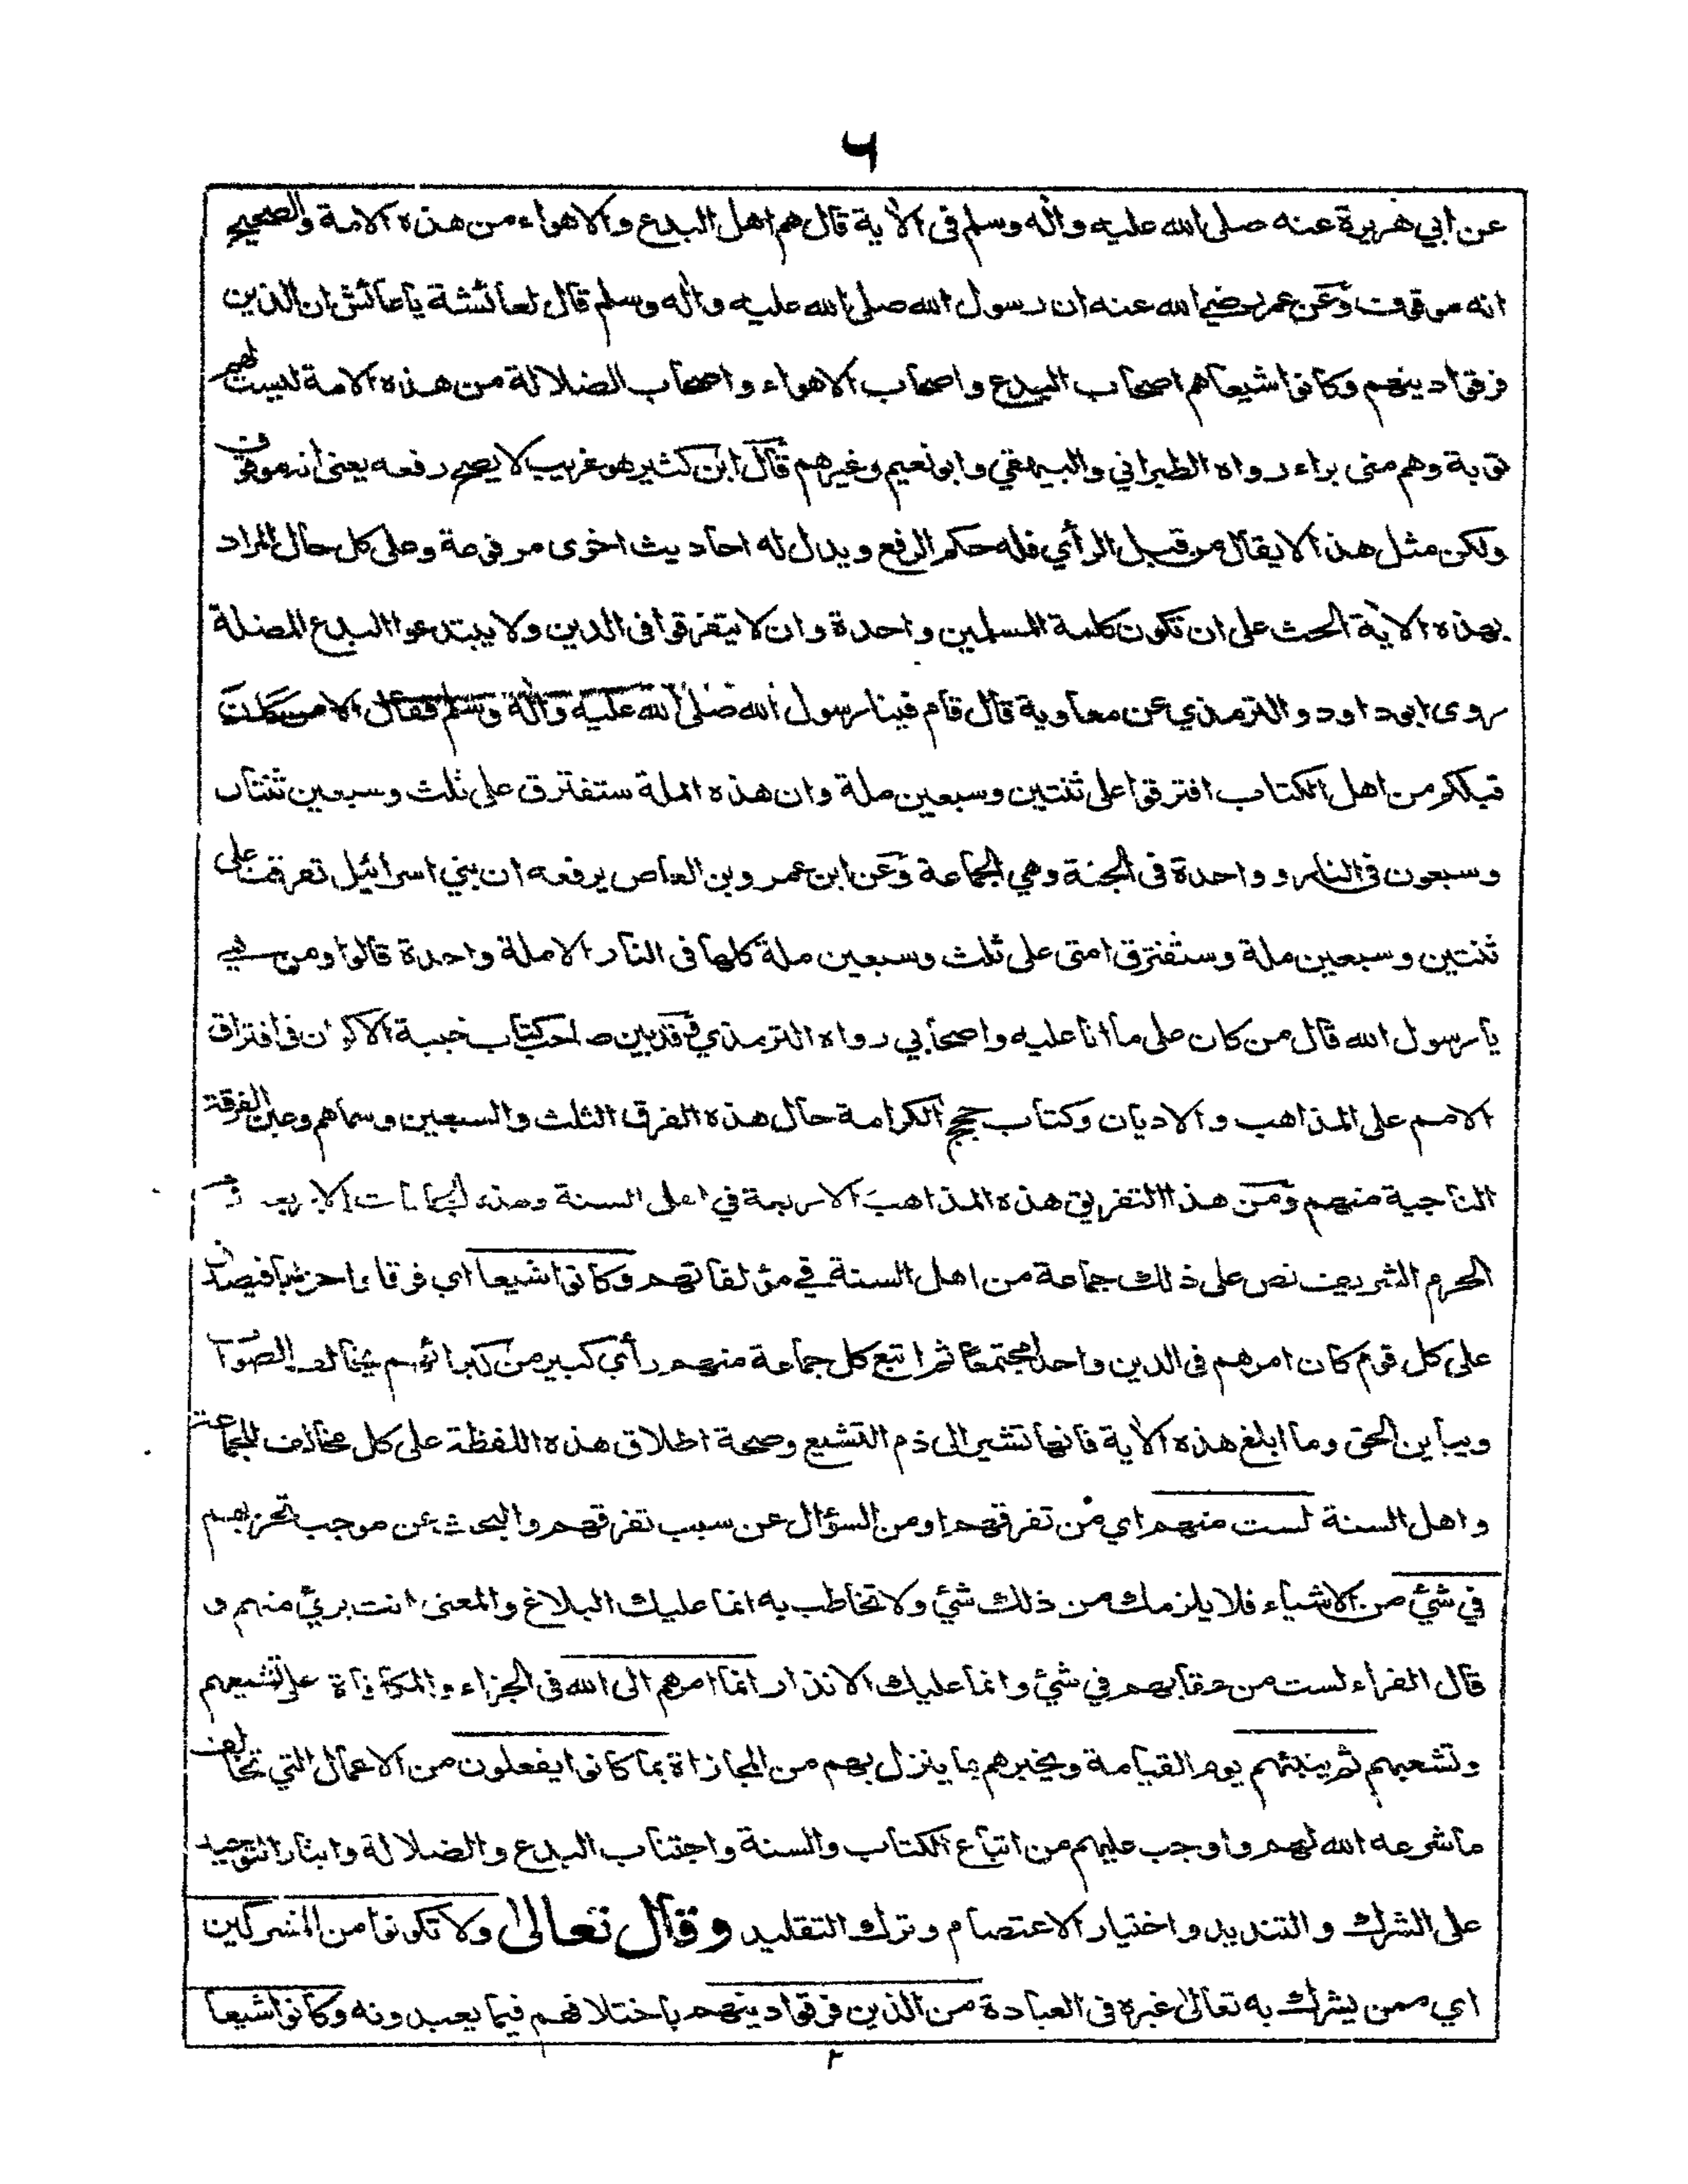 ٦
عن ابي هريرة عنه صلى الله عليه واٰله وسلم فى الاٰية قال هم اهل البدع والاهواء من هذه الامة والصحيح
انه موقوف وعن عمر رضي الله عنه ان رسول الله صلى الله عليه واٰله وسلم قال لعائشة يا عائش ان الذين
فرقوا دينهم وكانوا شيعا هم اصحاب البدع واصحاب الاهواء واصحاب الضلالة من هذه الامة ليست لهم
توبة وهم منى براء رواه الطبراني والبيهقي وابو نعيم وغيرهم قال ابن كثير هو غريب لا يصح رفعه يعنى انه موقوف
ولكن مثل هذا لا يقال من قبل الرأي فله حكم الرفع ويدل له احاديث اخرى مرفوعة وعلى كل حال المراد
بهذه الاٰية الحث على ان تكون كلمة المسلمين واحدة وان لا يتفرقوا فى الدين ولا يبتدعوا البدع المضلة
روى ابو داود والترمذي عن معاوية قال قام فينا رسول الله صلى الله عليه واٰلة وسلم فقال الا من كان
قبلكم من اهل الكتاب افترقوا على ثنتين وسبعين ملة وان هذه الملة ستفترق على ثلث وسبعين ثنتان
وسبعون فى النار وواحدة فى الجنة وهي الجماعة وعن ابن عمرو بن العاص يرفعه ان بني اسرائيل تفرقت على
ثنتين وسبعين ملة وستفترق امتى على ثلث وسبعين ملة كلها فى النار الا ملة واحدة قالوا ومن هي
يا رسول الله قال من كان على ما انا عليه واصحابي رواه الترمذي وقد بين صاحب كتاب خبية الاكوان فى افتراق
الامم على المذاهب والاديان وكتاب حجج الكرامة حال هذه الفرق الثلث والسبعين وسماهم وعين الفرقة
الناجية منهم ومن هذا التفريق هذه المذاهب الاربعة في اهل السنة وهذه الجماعات الاربعة في
الحرم الشريف نص على ذلك جماعة من اهل السنة في مؤلفاتهم وكانوا شيعا اي فرقا واحزابا فيصدق
على كل قوم كان امرهم فى الدين واحدا مجتمعا ثم اتبع كل جماعة منهم رأي كبير من كبرائهم يخالف الصواب
ويباين الحق وما ابلغ هذه الاٰية فانها تشير الى ذم التشيع وصحة اطلاق هذه اللفظة على كل مخالف للجماعة
واهل السنة لست منهم اي من تفرقهم او من السؤال عن سبب تفرقهم والبحث عن موجب تحزبهم
في شئ من الاشياء فلا يلزمك من ذلك شئ ولا تخاطب به انما عليك البلاغ والمعنى انت برئ منهم و
قال الفراء لست من عقابهم في شئ وانما عليك الانذار انما امرهم الى الله فى الجزاء والمكافاة على تشيعهم
وتشعبهم ثم ينبئهم يوم القيامة ويخبرهم بما ينزل بهم من المجازاة بما كانوا يفعلون من الاعمال التي تخالف
ما شرعه الله لهم واوجب عليهم من اتباع الكتاب والسنة واجتناب البدع والضلالة وايثار التوحيد
على الشرك والتنديد واختيار الاعتصام وترك التقليد وقال تعالىٰ ولا تكونوا من المشركين
اي ممن يشرك به تعالىٰ غيره فى العبادة من الذين فرقوا دينهم باختلافهم فيما يعبدونه وكانوا شيعا